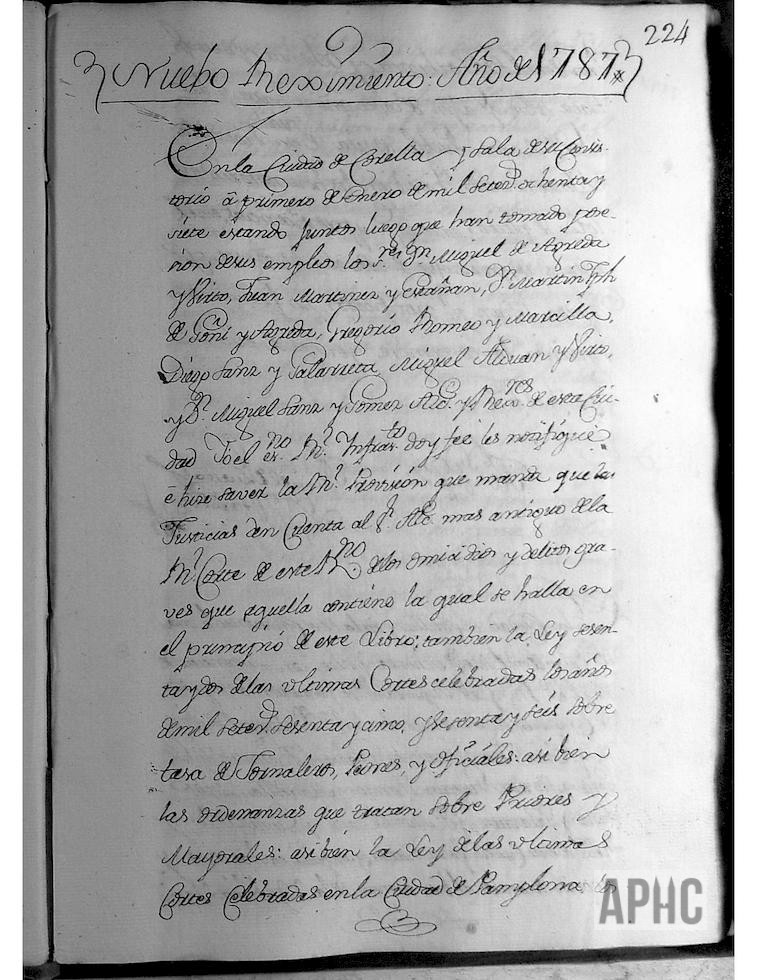 224
Nuebo Reximiento: Año de 1787
En la Ciudad de Corella y Sala de su Consis-
torio á primero de Enero de mil Seteᵈ. ochenta y
siete estando juntos luego que han tomado pose-
sion de sus empleos los S.ʳᵉˢ Dⁿ. Miguel de Agreda
y Virto, Juan Martinez y Estañan, Dⁿ. Martin Jph
de Goñi y Agreda, Gregorio Romeo y Marcilla,
Diego Sanz y Galarreta, Miguel Alduan y Virto,
y Dⁿ. Miguel Sanz y Gomez Alc.ᵉ y Rex.ʳᵉˢ de esta Ciu-
dad Yo el es.ⁿᵒ R.ˡ Infras.ᵗᵒ doy fee les notifiqué
é hize saver la R.ˡ Provisión que manda que las
Justicias den Cuenta al S.ʳ Alc. mas antiguo de la
R.ˡ Corte de este R.ⁿᵒ de los omicidios y delitos gra-
ves que aquella contiene la qual se halla en
el principio de este Libro; tambien la Ley sesen-
ta y dos de las vltimas Cortes celebradas los años
de mil Seteᵈ. sesenta y cinco, y sesenta y seis sobre
tasa de Jornaleros, Peones, y oficiales: asi bien
las ordenanzas que tratan sobre Priores y
Mayorales: asi bien la Ley de las vltimas
Cortes Celebradas en la Ciudad de Pamplona los
APHC